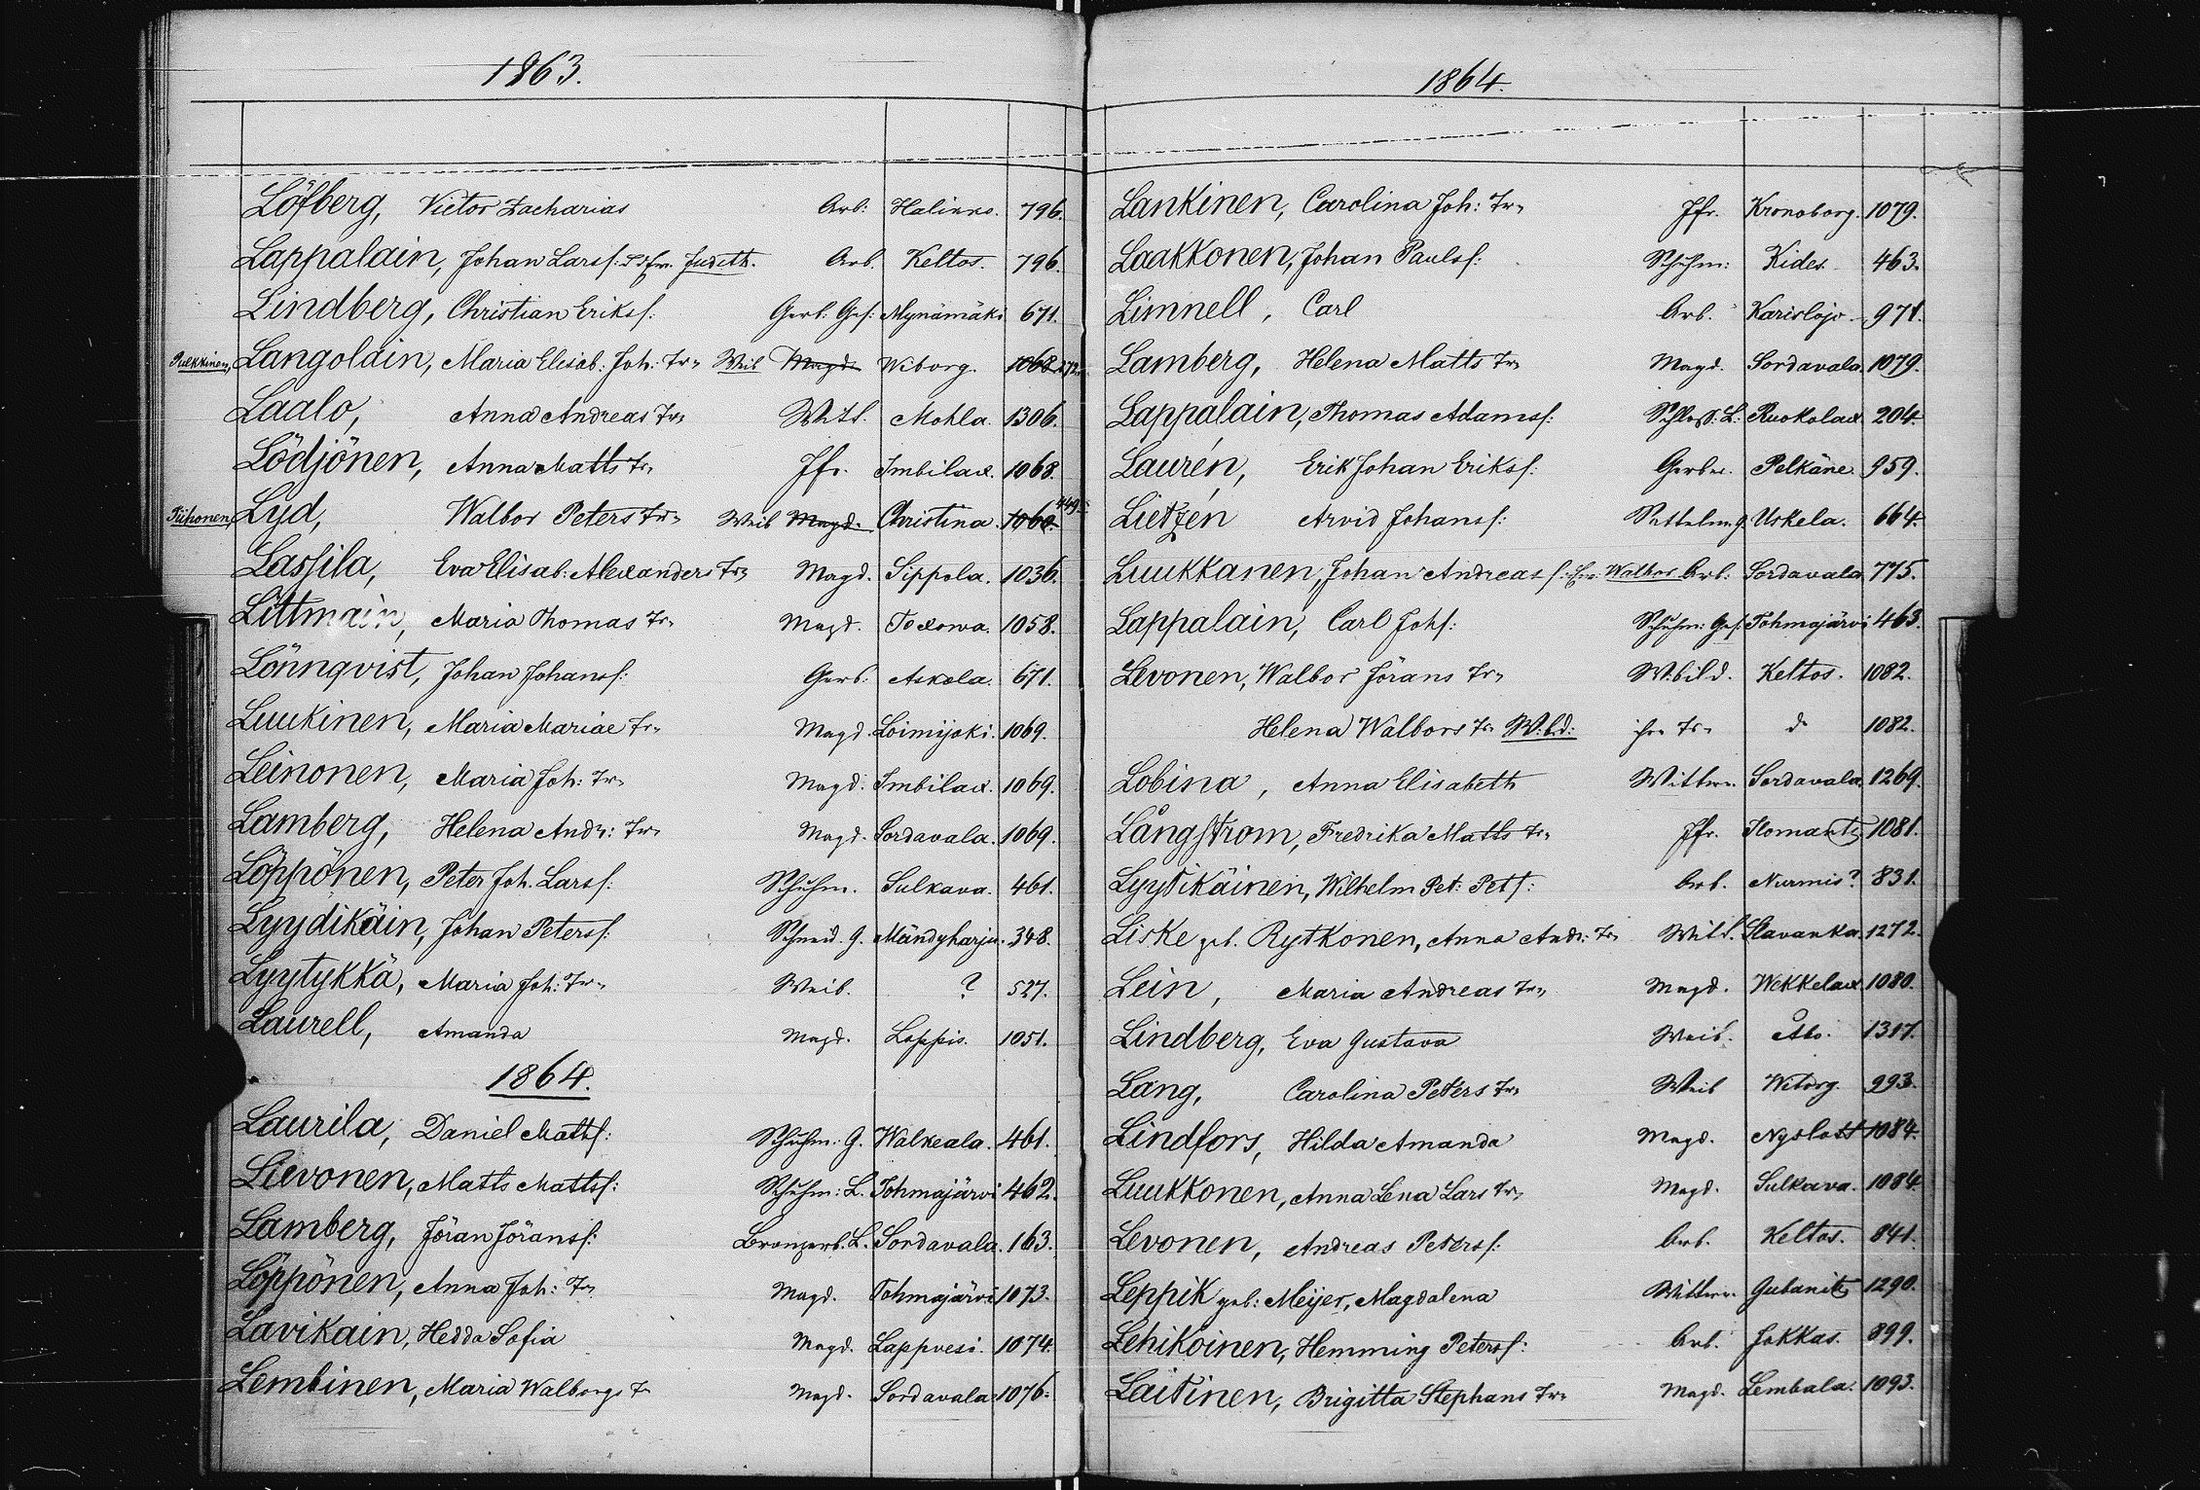 1863.
Löfberg, Victor Zacharias Arb: 796.
Lappalain, Johan Larsf: Judith. Arb. Keltos. 796.
Lindberg, Christian Eriksf: Gerb: Ges: Mynämäki 671.
Pulkkinen, Langolain, Maria Elisab: Joh: Tr Weib Magd. Wiborg. 1068.
Laalo, Anna Andreas Tr Mohla. 1306.
Lödjönen, Anna Matts Tr Jfr. Imbilax. 1068.
Tiihonen, Lyd, Walbor Peters Tr Weib Magd. Christina. 1060. 449.
Lassila, Eva Elisab: Alexanders Tr Magd. Sippola. 1036.
Littmain, Maria Thomas Tr Magd. Toxowa. 1058.
Lönnqvist, Johan Johansf: Gerb: Askola. 671.
Luukinen, Maria Mariae Tr Magd. Loimijoki. 1069.
Leinonen, Maria Joh: Tr Magd: Imbilax. 1069.
Lamberg, Helena Andr: Tr Magd. Sordavala. 1069.
Löppönen, Peter Joh. Larsf: Schuhm. Sulkava. 461.
Lyydikäin, Johan Petersf: Schneid. G. Mändyharju. 348.
Lyytykkä, Maria Joh: Tr Weib. ? 527.
Laurell, Amanda Magd. Loppis. 1051.
1864.
Laurila, Daniel Mattsf: Schuhm: G. Walkeala. 461.
Lievonen, Matts Mattsf: Schuhm: L. Tohmajärvi 462.
Lamberg, Jöran Jöransf: Bronzarb. L. Sordavala. 163.
Löppönen, Anna Joh: Tr Magd. Tohmajärvi 1073.
Lavikain, Hedda Sofia Magd. Lappvesi. 1074.
Lembinen, Maria Walborgs T Magd. Sordavala 1076.
1864.
Lankinen, Carolina Joh: Tr Jfr. Kronoborg. 1079.
Laakkonen, Johan Paulsf: Schuhm: Kides. 463.
Limnell, Carl Arb. Karislojo 971.
Lamberg, Helena Matts Tr Magd. Sordavala. 1079.
Lappalain, Thomas Adamsf: Schloss. L: Ruokolax. 204.
Laurén, Erik Johan Eriksf: Gerber. Pelkäne. 959.
Lietzén Arvid Johansf: Sattelm. g. Uskela. 664.
Luukkanen, Johan Andreas f: Fr: Walbor Arb: Sordavala 775.
Lappalain, Carl Johf: Schuhm: Ges: Tohmajärvi 463.
Levonen, Walbor Jörans Tr W.bild. Keltos. 1082.
Helena Walbors Tr W.bd: ihre Tr d 1082.
Lobina, Anna Elisabeth Wittwe. Sordavala. 1269.
Långström, Fredrika Matts Tr Jfr. Ilomants 1081.
Lyytikäinen, Wilhelm Pet: Petf: Arb. Nurmis? 831.
Liske geb. Rytkonen, Anna Andr: Tr Slavanka. 1272.
Lein, Maria Andreas Tr Magd. Wekkelax 1080.
Lindberg, Eva Gustava Weib. Åbo. 1317.
Lang, Carolina Peters Tr Weib Wiborg. 993.
Lindfors, Hilda Amanda Magd. Nyslott 1084.
Luukkonen, Anna Lena Lars Tr Magd. Sulkava. 1084.
Levonen, Andreas Petersf: Arb. Keltos. 841.
Leppik geb: Meijer, Magdalena Wittwe. Gubanits 1290.
Lehikoinen, Hemming Petersf: Arb. Jokkas. 899.
Laitinen, Brigitta Stephans Tr Magd. Lembala. 1093.